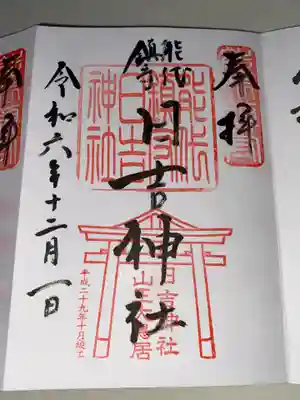 奉拝
能代
鎮守
日吉神社
令和六年十二月一日
能代
鎮守
日吉
神社
日吉神社
山王大鳥居
平成二十九年十月竣工
奉拝